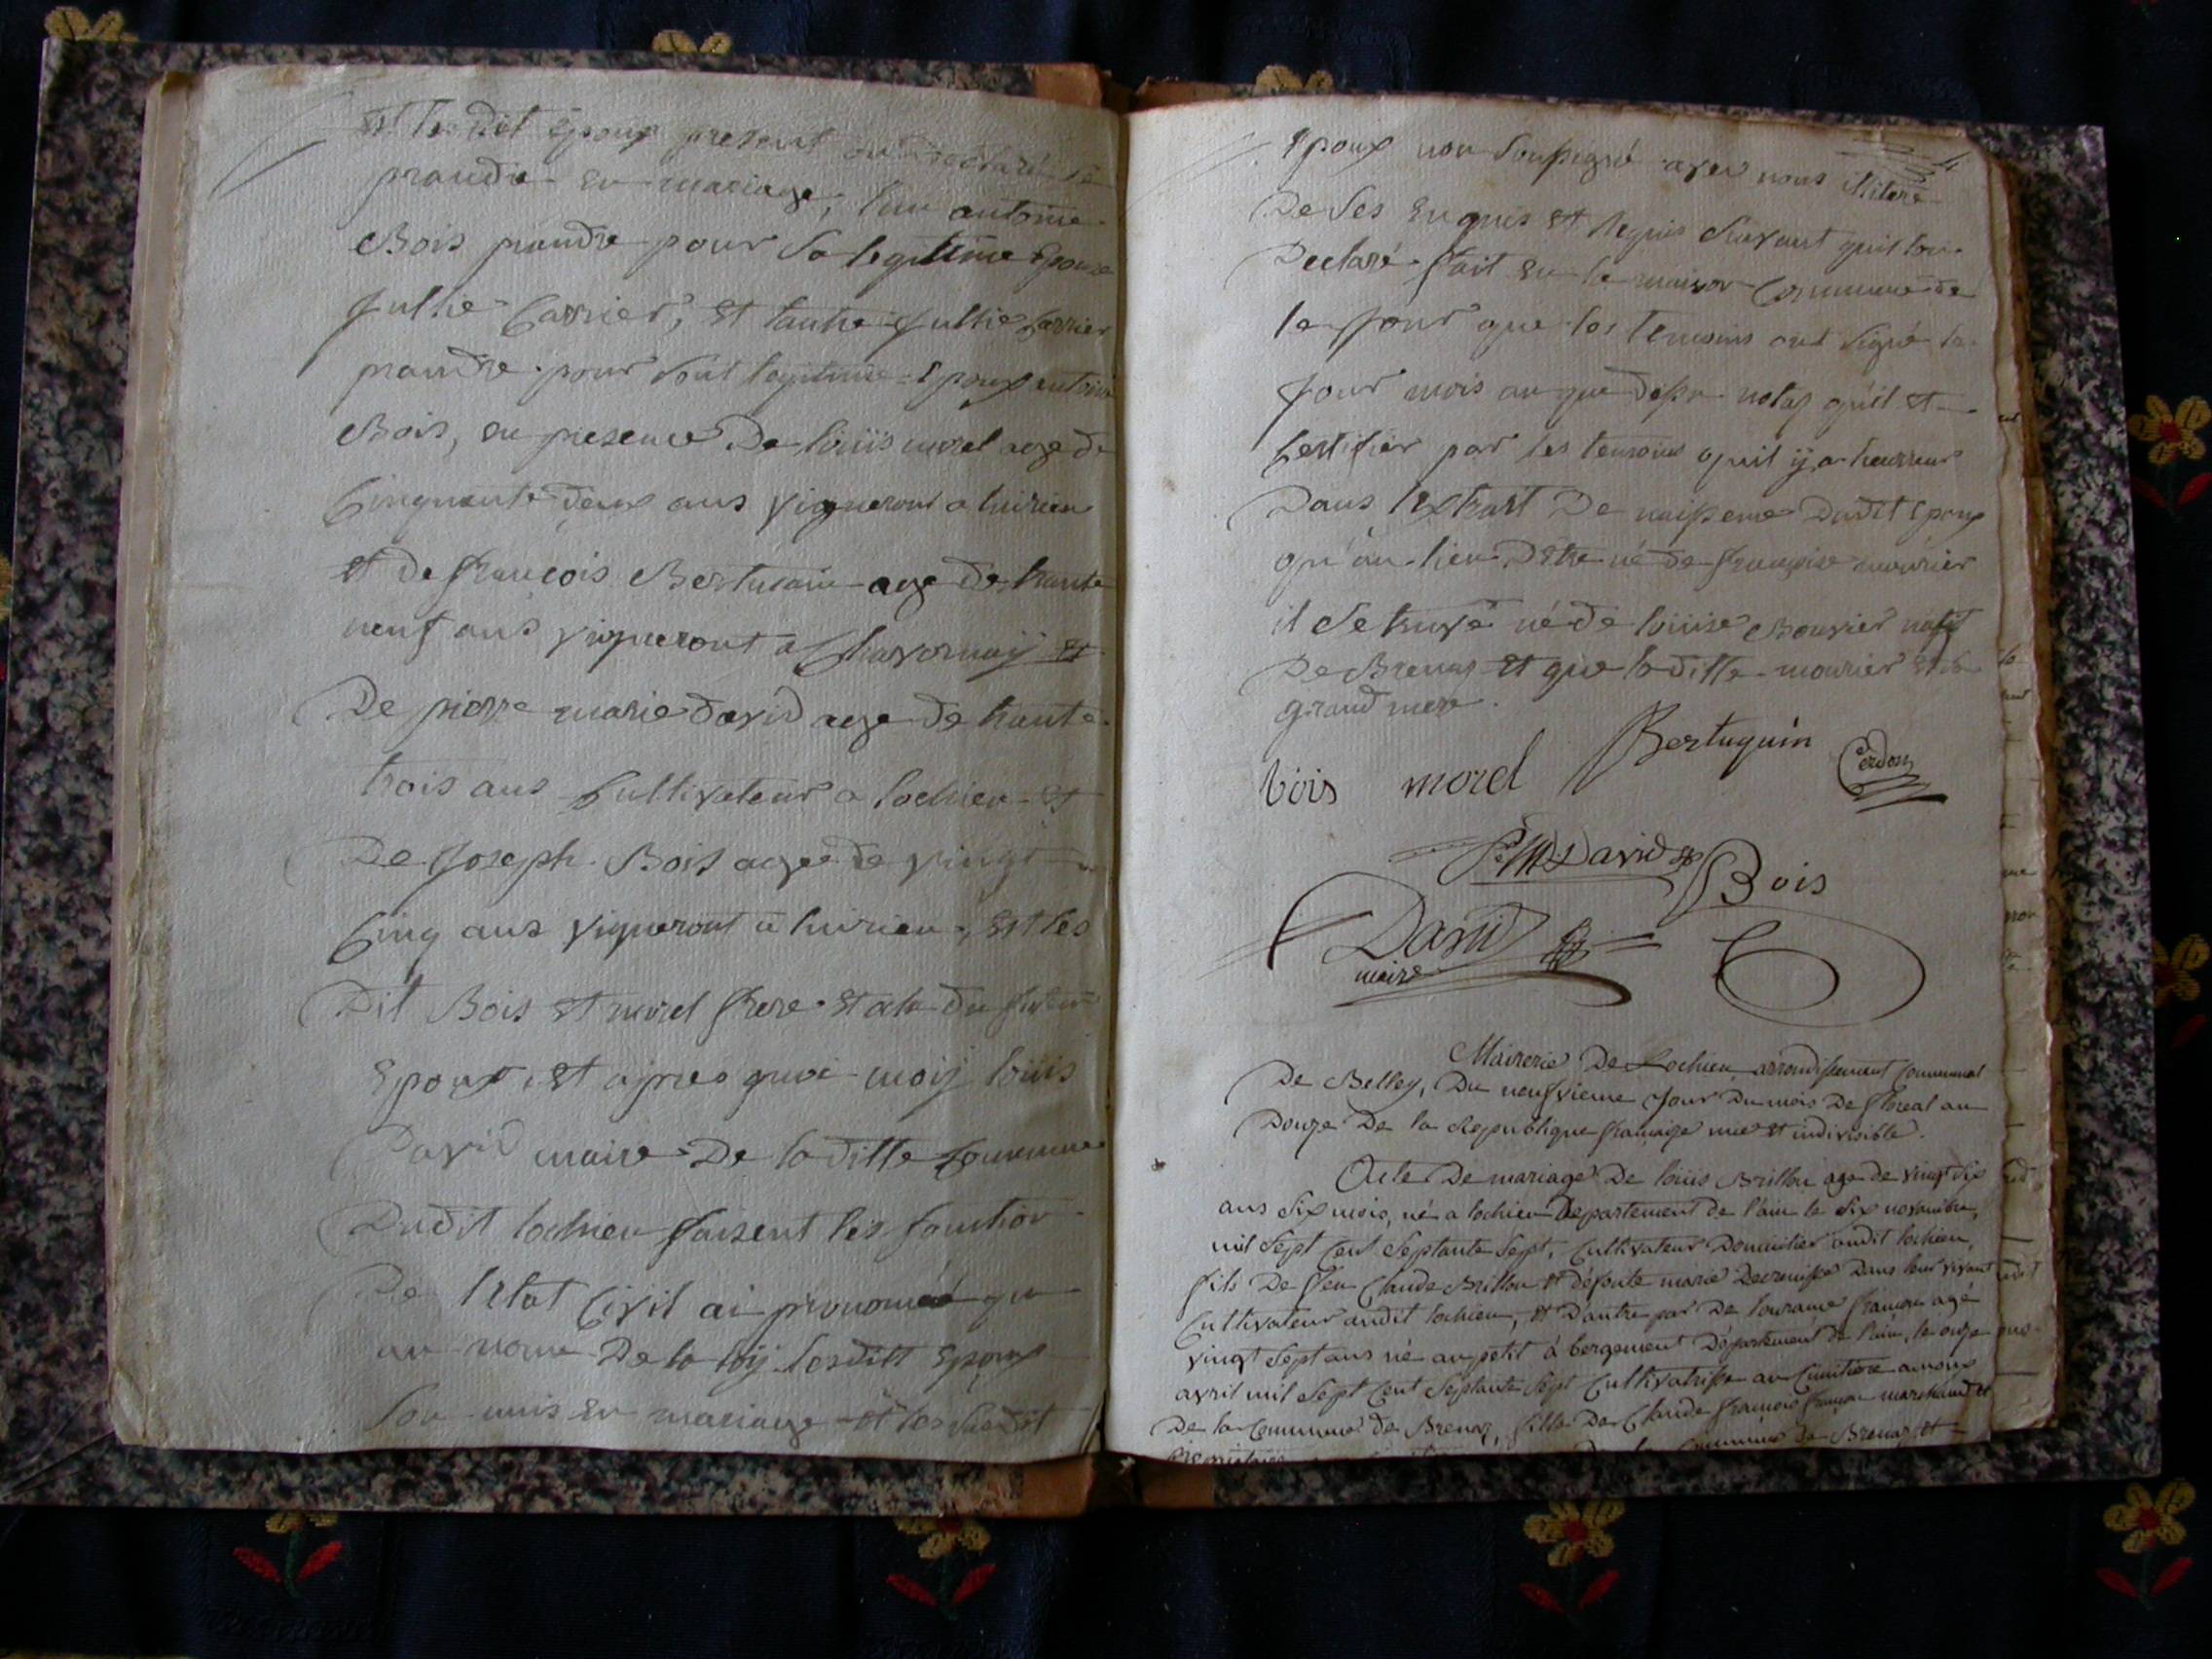 Et les dit Epoux present ont declaré se
prandre en mariage, lun antoine
Bois prandre pour sa legitime Epouse
Jullie Carrier, et lautre Jullie Carrier
prandre pour sont legitime Epoux antoine
Bois, en presence De loüis morel age de
Cinquante deux ans vigneront a
et De françois Bertucain age de trante
neuf ans vigneront a Chavornaÿ et
De pierre marie david age de trante
trois ans Cultivateur a lochieu et
De Joseph Bois age de vingt
Cinq ans vigneront a , Est les
Dit Bois et morel frere et du futur
Epoux, et apres quoi moÿ loüis
David maire De laditte Commune
Dudit lochieu faisent les fonction
De l'Etat Civil ai prononcé qu
au nom De la loÿ lesditt Epoux
son unis En mariage et les susdit
Epoux non soussigné avec nous
De Ses Enquis et Requis suivant quil lon
Declaré fait En la maison Commune de
le Jour que les temoins ont signé le
Jour mois an que dessu notas quil et
Certifier par les temoins quil ÿ a heurreur
Dans lextrait De naissence Dudit Epoux
qu'au lieu Dêtre né de françoise mourier
il se truve né de loüise Bouvier natif
De Brenas et que laditte mourier est sa
grand mere.
bois morel Bertuquin Cerdon
P. M. David Bois
David
maire
Mairerie De Lochieu arrondissement Communal
De Belley, Du neufvieme Jour Du mois De floreal an
Douze De la Republique française une et indivisible.
Acte De mariage De loüis Brillon age de vingt six
ans six mois, né a lochieu Departement de l'ain le six novembre
mil sept Cent septante sept, Cultivateur Domicilier audit lochieu,
fils De feu Claude Brillon et défunte marie Dans leur vivant
Cultivateur audit lochieu, et D'autre par De françon agé
vingt sept ans né au petit à bergement Département de l'ain, le onze
avril mil sept Cent septante sept Cultivatrisse au Cimitière
De la Commune de Brenaz, fille De Claude françois françon marchand et
Commune De Brenaz et